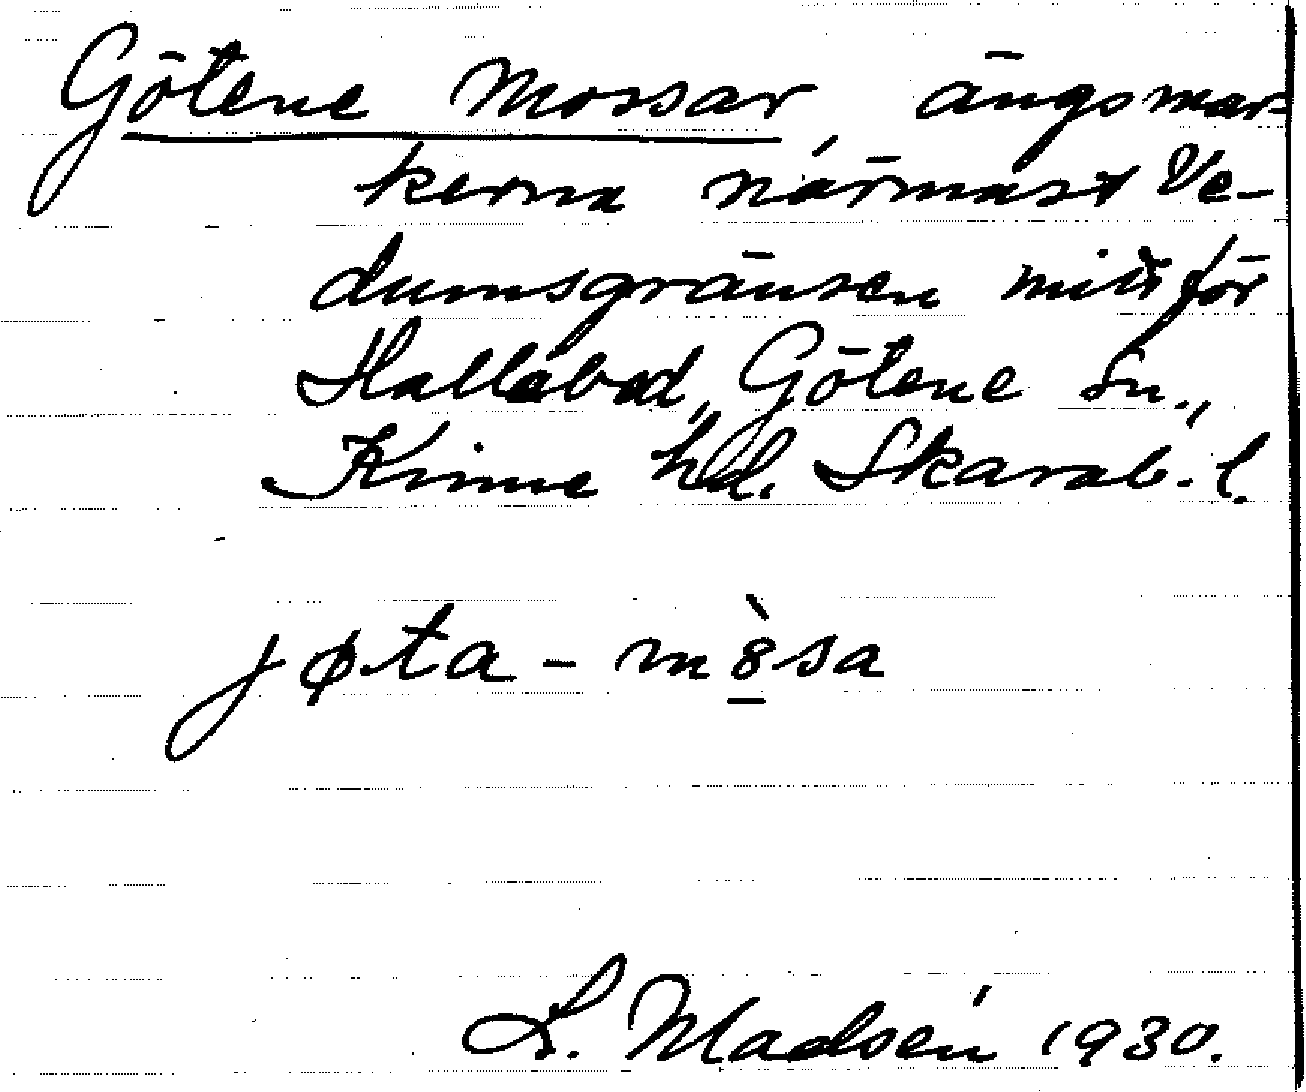 Götene Mossar, ängsmar-
kerna närmast Ve-
dumsgränsen mitt för
Hallebad, Götene sn.,
Kinne hd. Skarab. l.
jøta - m8̱̀sa
L. Madsén 1930.